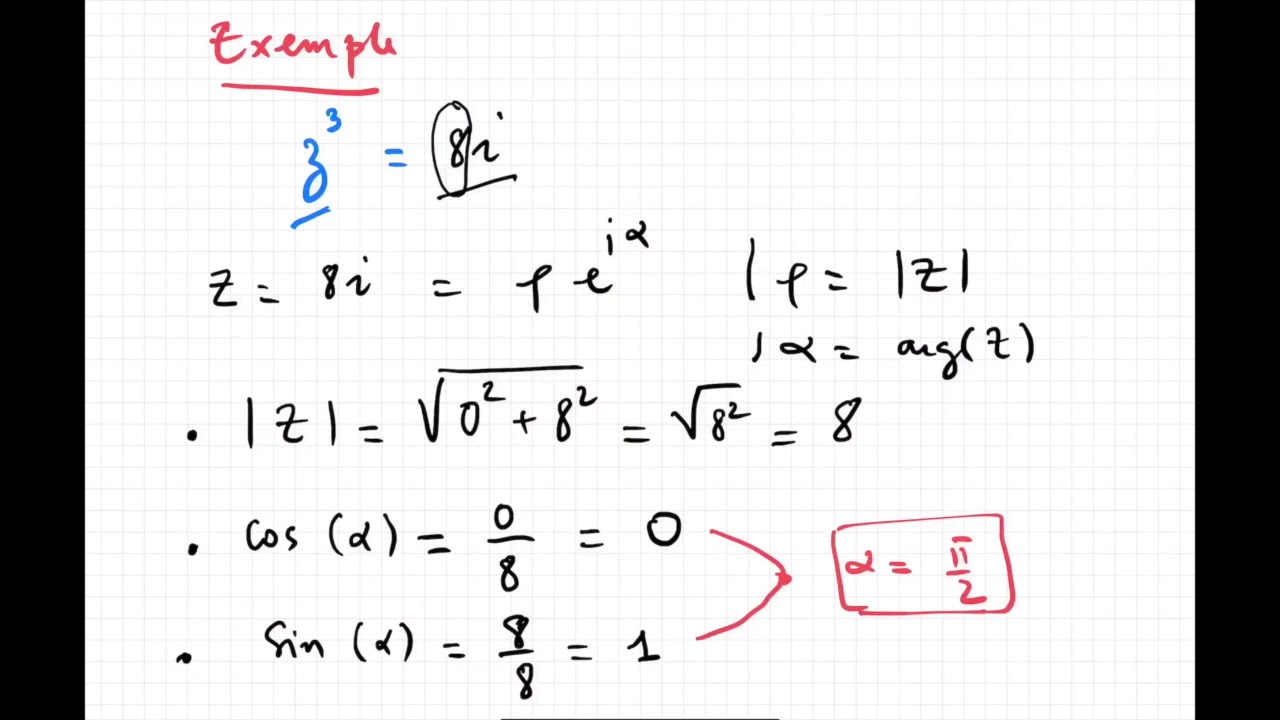 Exemple
z³ = 8i
Z = 8i = ρ e^{iα} | ρ = |Z|
| α = arg(Z)
• |Z| = √(0² + 8²) = √8² = 8
• cos (α) = 0/8 = 0
α = π/2
• sin (α) = 8/8 = 1